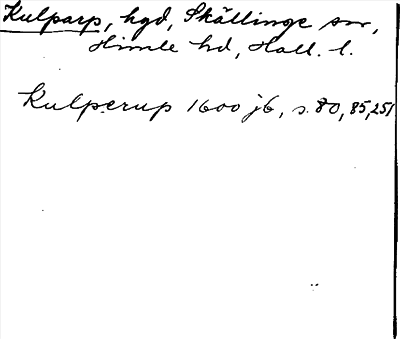 Kulparp, hgd, Skällinge sn,
Himle hd, Hall. l.
Kulperup 1600 jb, s. 80, 85, 251